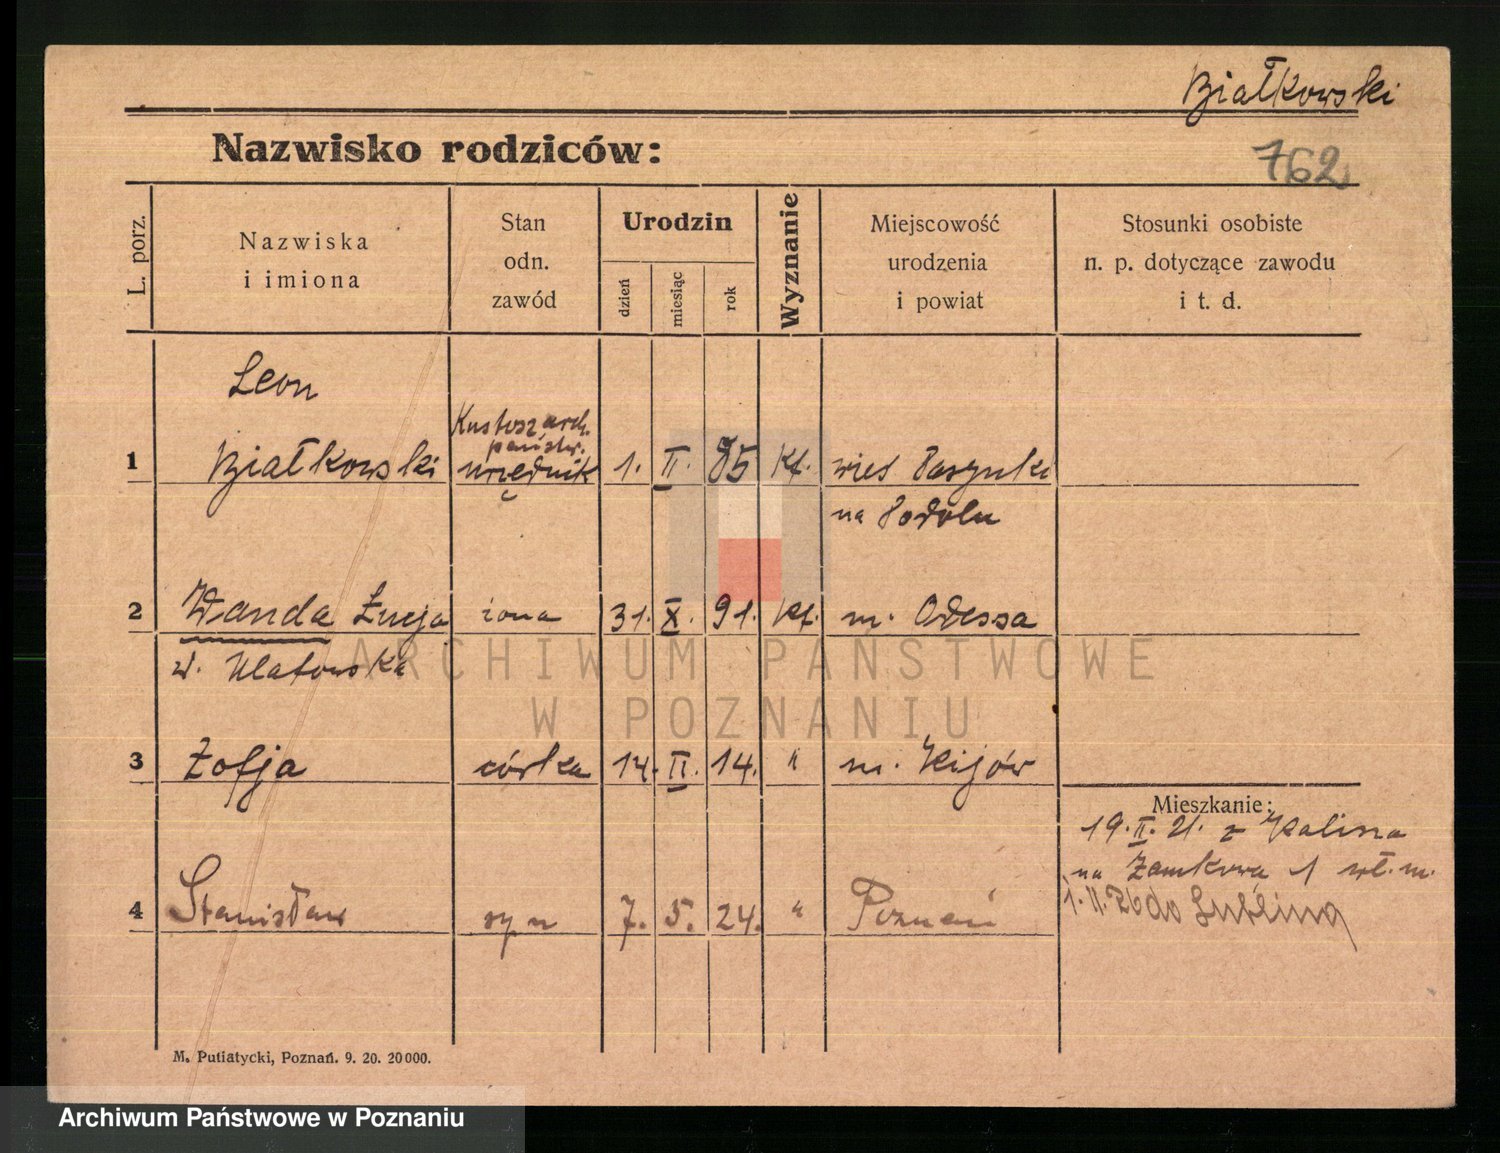 Białkowski
Nazwisko rodziców:
762
L. porz.
Nazwiska
i imiona
Stan
odn.
zawód
Urodzin
dzień
miesiąc
rok
Wyznanie
Miejscowość
urodzenia
i powiat
Stosunki osobiste
n. p. dotyczące zawodu
i t. d.
Leon
Kustosz arch.
państw.
1 Białkowski urzędnik 1. II. 85 Kt. wieś
na Podolu
2 Wanda Łucja żona 31. X. 91. Kt. m. Odessa
z d. Ulatowska
ARCHIWUM PAŃSTWOWE
W POZNANIU
3 Zofja córka 14. II. 14. " m. Kijów
Mieszkanie:
19. II. 21. z Kalisza
na Zamkowa 1 wł. m.
4 Stanisław syn 7. 5. 24. " Poznań
1. II. 26 do Lublina
M. Putiatycki, Poznań. 9. 20. 20000.
Archiwum Państwowe w Poznaniu